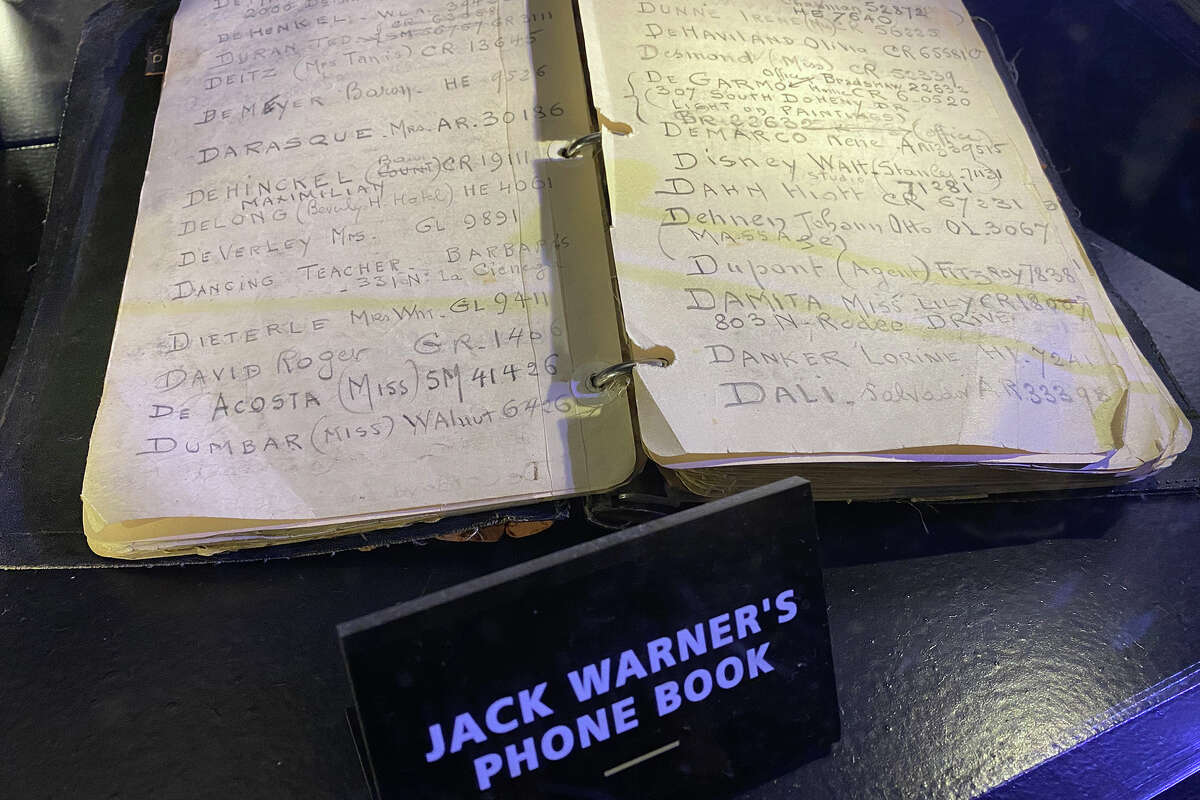 DEHENKEL. WLA.
DURAN TED.
DEITZ (Mrs Tanis) CR. 13645
BEMEYER Baron. HE 9526
DARASQUE. Mrs. AR. 30186
DEHINCKEL (COUNT) CR 19111
MAXIMILIAN
DELONG (Beverly H. Hotel) HE 4061
DEVERLEY Mrs. GL 9891
DANCING TEACHER BARBARAS
331 N. La Cieneg
DIETERLE Mrs Wm. GL 9411
DAVID Roger GR. 1406
DE ACOSTA (Miss) SM 41426
DUMBAR (Miss) WAlnut 6426
52372
DUNNE IRENE HE 7640
CR 56225
DeHAVILAND Olivia CR 65581
Desmond (Miss) CR 52339
DE GARMO Office
(307 SOUTH DOHENY DR
LIGHT OF PAINTINGS)
DEMARCO Rene (Office)
DISNEY WALT. Stanley. 71131
Studio (71281)
DAHN Hiatt CR 67231
Dehnen Johann Otto OL 3067
(MASSAGE)
Dupont (Agent) FITZROY 78381
DAMITA Miss LILY CR
803 N. Rodeo DRIVE
DANKER LORINE HY. 7241
DALI. Salvador AR 33398
JACK WARNER'S
PHONE BOOK